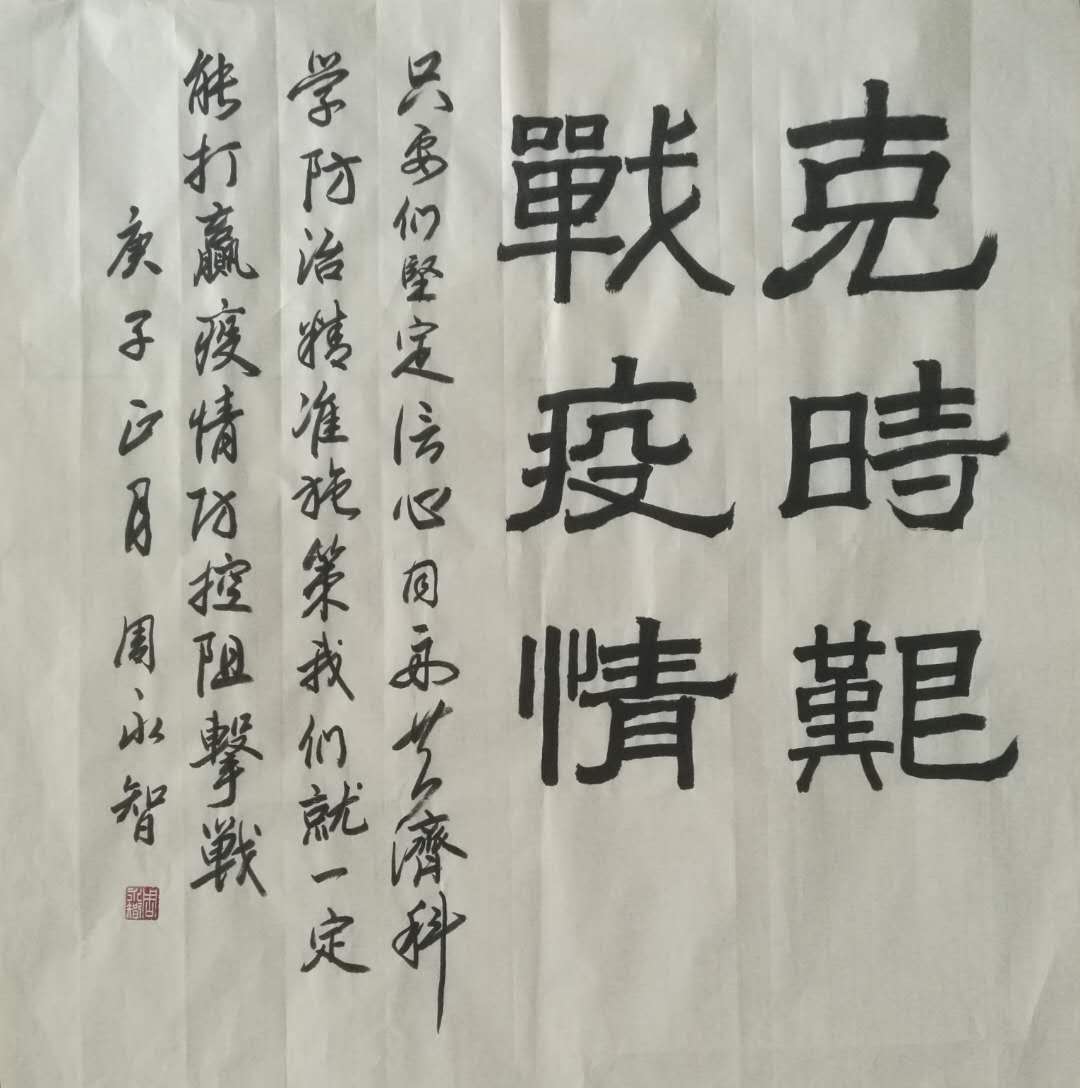 克時艱
戰疫情
只要们堅定信心同舟共濟科
学防治精准施策我们就一定
能打贏疫情防控阻擊戦
庚子正月 周永智
周永智